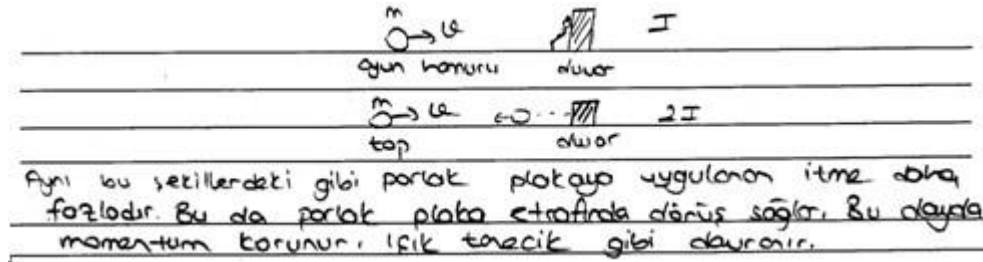 m → v I
oyun hamuru duvar
m → v 2I
top duvar
Aynı bu şekillerdeki gibi parlak plakaya uygulanan itme daha
fazladır. Bu da parlak plaka etrafında dönüş sağlar. Bu olayda
momentum korunur. Işık tanecik gibi davranır.